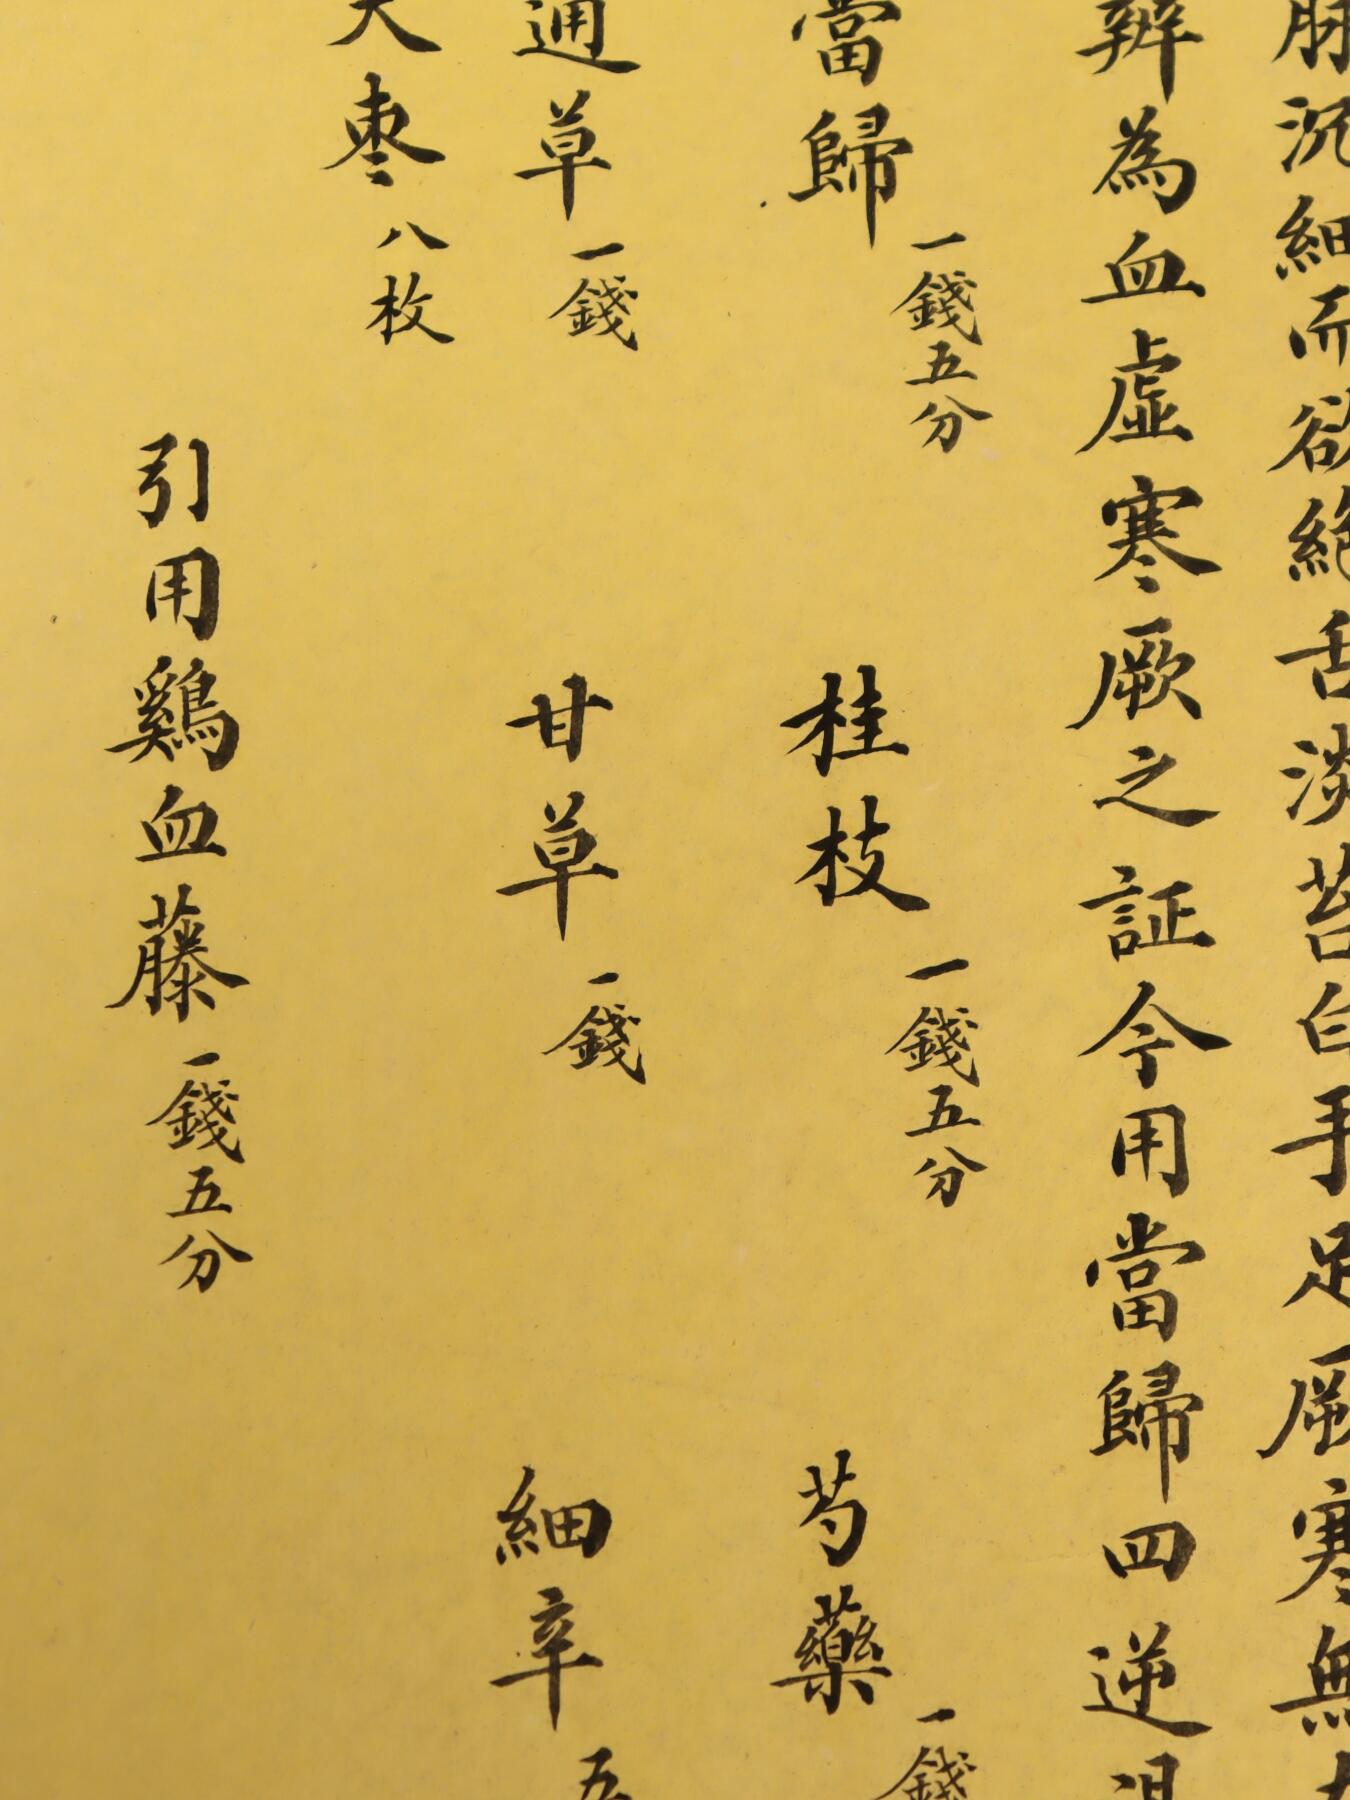 脈沉細而欲絕舌淡苔白手足厥寒無
辨為血虛寒厥之証今用當歸四逆湯
當歸一錢五分 桂枝一錢五分 芍藥一錢
通草一錢 甘草一錢 細辛五
大棗八枚
引用鷄血藤一錢五分